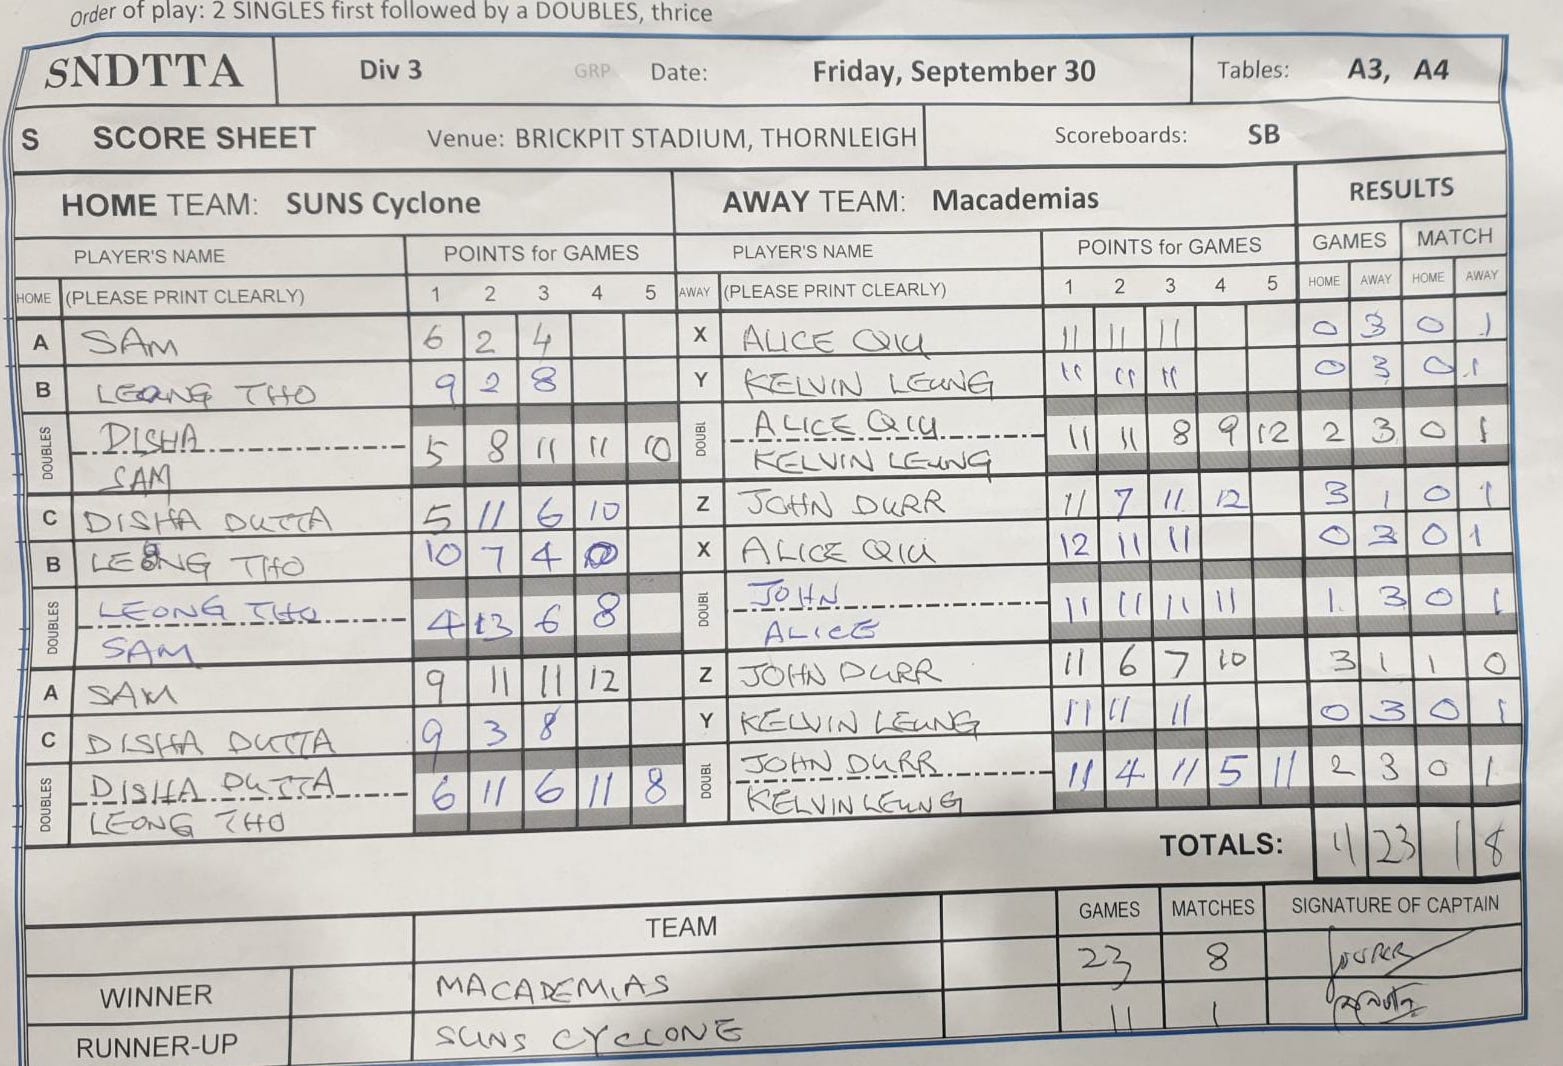 Order of play: 2 SINGLES first followed by a DOUBLES, thrice
SNDTTA Div 3 GRP Date: Friday, September 30 Tables: A3, A4
S SCORE SHEET Venue: BRICKPIT STADIUM, THORNLEIGH Scoreboards: SB
HOME TEAM: SUNS Cyclone AWAY TEAM: Macademias RESULTS
PLAYER'S NAME POINTS for GAMES PLAYER'S NAME POINTS for GAMES GAMES MATCH
HOME (PLEASE PRINT CLEARLY) 1 2 3 4 5 AWAY (PLEASE PRINT CLEARLY) 1 2 3 4 5 HOME AWAY HOME AWAY
A SAM 6 2 4 X ALICE QIU 11 11 11 0 3 0 1
B LEONG THO 9 2 8 Y KELVIN LEUNG 11 11 11 0 3 0 1
DOUBLES DISHA 5 8 11 11 10 DOUBL ALICE QIU 11 11 8 9 12 2 3 0 1
SAM KELVIN LEUNG
C DISHA DUTTA 5 11 6 10 Z JOHN DURR 11 7 11 12 3 1 0 1
B LEONG THO 10 7 4 X ALICE QIU 12 11 11 0 3 0 1
DOUBLES LEONG THO 4 13 6 8 DOUBL JOHN 11 11 11 11 1 3 0 1
SAM ALICE
A SAM 9 11 11 12 Z JOHN DURR 11 6 7 10 3 1 1 0
C DISHA DUTTA 9 3 8 Y KELVIN LEUNG 11 11 11 0 3 0 1
DOUBLES DISHA DUTTA 6 11 6 11 8 DOUBL JOHN DURR 11 4 11 5 11 2 3 0 1
LEONG THO KELVIN LEUNG
TOTALS: 11 23 1 8
TEAM GAMES MATCHES SIGNATURE OF CAPTAIN
WINNER MACADEMIAS 23 8
RUNNER-UP SUNS CYCLONE 11 1